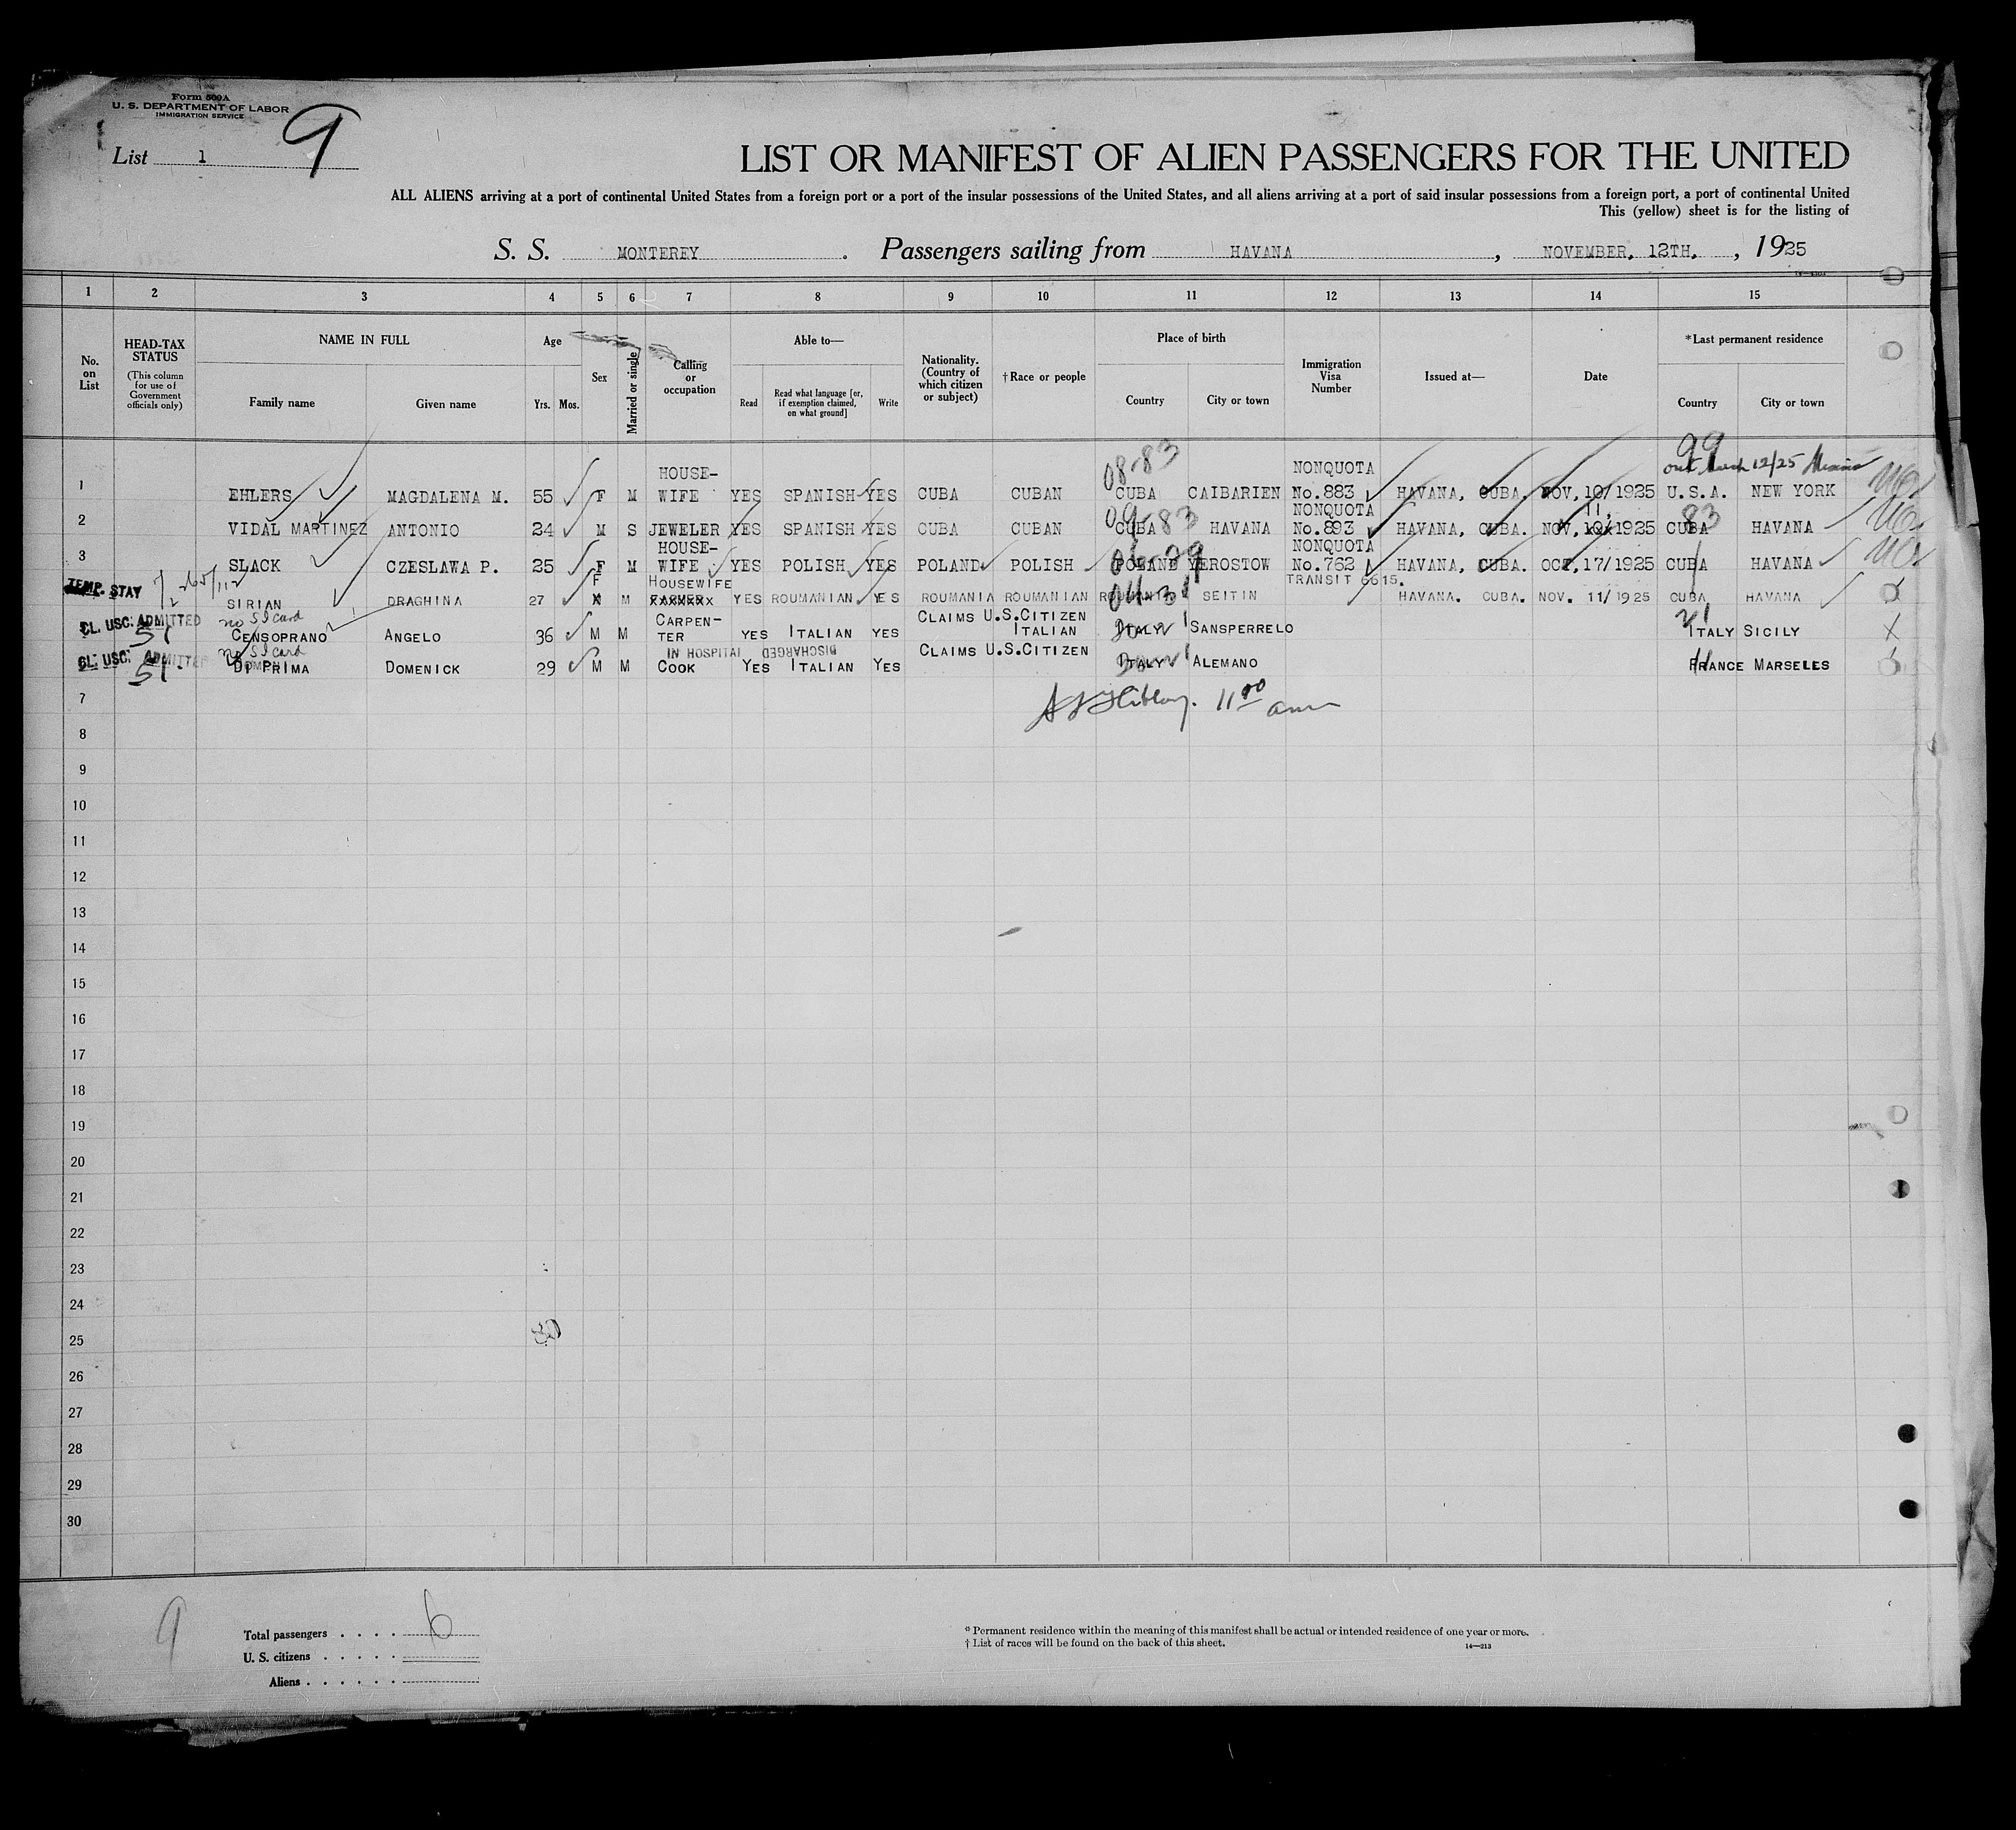 Form 500A
U. S. DEPARTMENT OF LABOR
IMMIGRATION SERVICE
9
List 1
LIST OR MANIFEST OF ALIEN PASSENGERS FOR THE UNITED
ALL ALIENS arriving at a port of continental United States from a foreign port or a port of the insular possessions of the United States, and all aliens arriving at a port of said insular possessions from a foreign port, a port of continental United
This (yellow) sheet is for the listing of
S. S. MONTEREY. Passengers sailing from HAVANA, NOVEMBER, 12TH., 1925
1 2 3 4 5 6 7 8 9 10 11 12 13 14 15
No. on List
HEAD-TAX STATUS
(This column for use of Government officials only)
NAME IN FULL
Family name Given name
Age
Yrs. Mos.
Sex
Married or single
Calling or occupation
Able to—
Read
Read what language [or, if exemption claimed, on what ground]
Write
Nationality. (Country of which citizen or subject)
†Race or people
Place of birth
Country City or town
Immigration Visa Number
Issued at—
Date
*Last permanent residence
Country City or town
08-83 99
12/25
1 EHLERS MAGDALENA M. 55 F M HOUSE-WIFE YES SPANISH YES CUBA CUBAN CUBA CAIBARIEN NONQUOTA No.883 HAVANA, CUBA. NOV, 10/1925 U.S.A. NEW YORK
09-83 11, 83
2 VIDAL MARTINEZ ANTONIO 24 M S JEWELER YES SPANISH YES CUBA CUBAN CUBA HAVANA NONQUOTA No.893 HAVANA, CUBA. NOV, /1925 CUBA HAVANA
3 SLACK CZESLAWA P. 25 F M HOUSE-WIFE YES POLISH YES POLAND POLISH POLAND YEROSTOW NONQUOTA No.762 HAVANA, CUBA. OCT, 17/1925 CUBA HAVANA
TEMP. STAY
SIRIAN DRAGHINA 27 F M HOUSEWIFE YES ROUMANIAN YES ROUMANIA ROUMANIAN ROUMANIA SEITIN TRANSIT 6615. HAVANA. CUBA. NOV. 11/1925 CUBA HAVANA
CL. USC: ADMITTED
51
no SI card
CENSOPRANO ANGELO 36 M M CARPEN-TER YES ITALIAN YES CLAIMS U.S.CITIZEN ITALIAN ITALY SANSPERRELO ITALY SICILY
CL: USC: ADMITTED
51.
no SI card
DI PRIMA DOMENICK 29 M M COOK YES ITALIAN YES CLAIMS U.S.CITIZEN ITALY ALEMANO FRANCE MARSELES
IN HOSPITAL DISCHARGED
11 00 am
7
8
9
10
11
12
13
14
15
16
17
18
19
20
21
22
23
24
25
26
27
28
29
30
9
Total passengers . . . . 6
U. S. citizens . . . . .
Aliens . . . . . .
* Permanent residence within the meaning of this manifest shall be actual or intended residence of one year or more.
† List of races will be found on the back of this sheet.
14—213